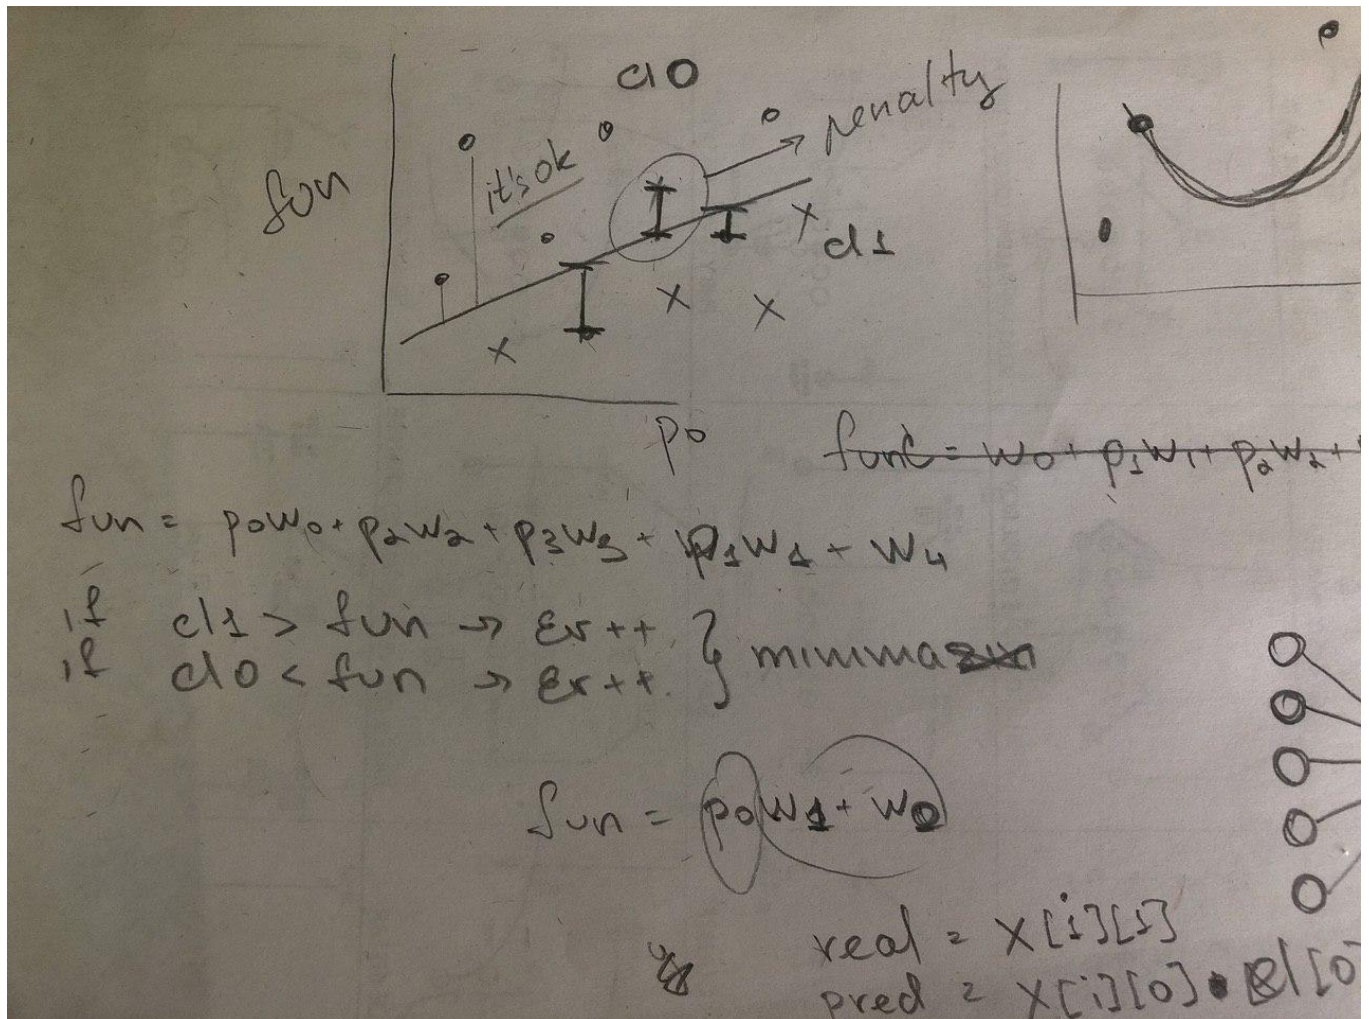 cl0
penalty
it's ok
fun
cl1
p0
func = w0 + p1w1 + p2w2 +
fun = p0w0 + p2w2 + p3w3 + p1w1 + w4
if cl1 > fun → Er++
if cl0 < fun → Er++
fun = p0w1 + w0
real = X[i][1]
pred = X[i][0]